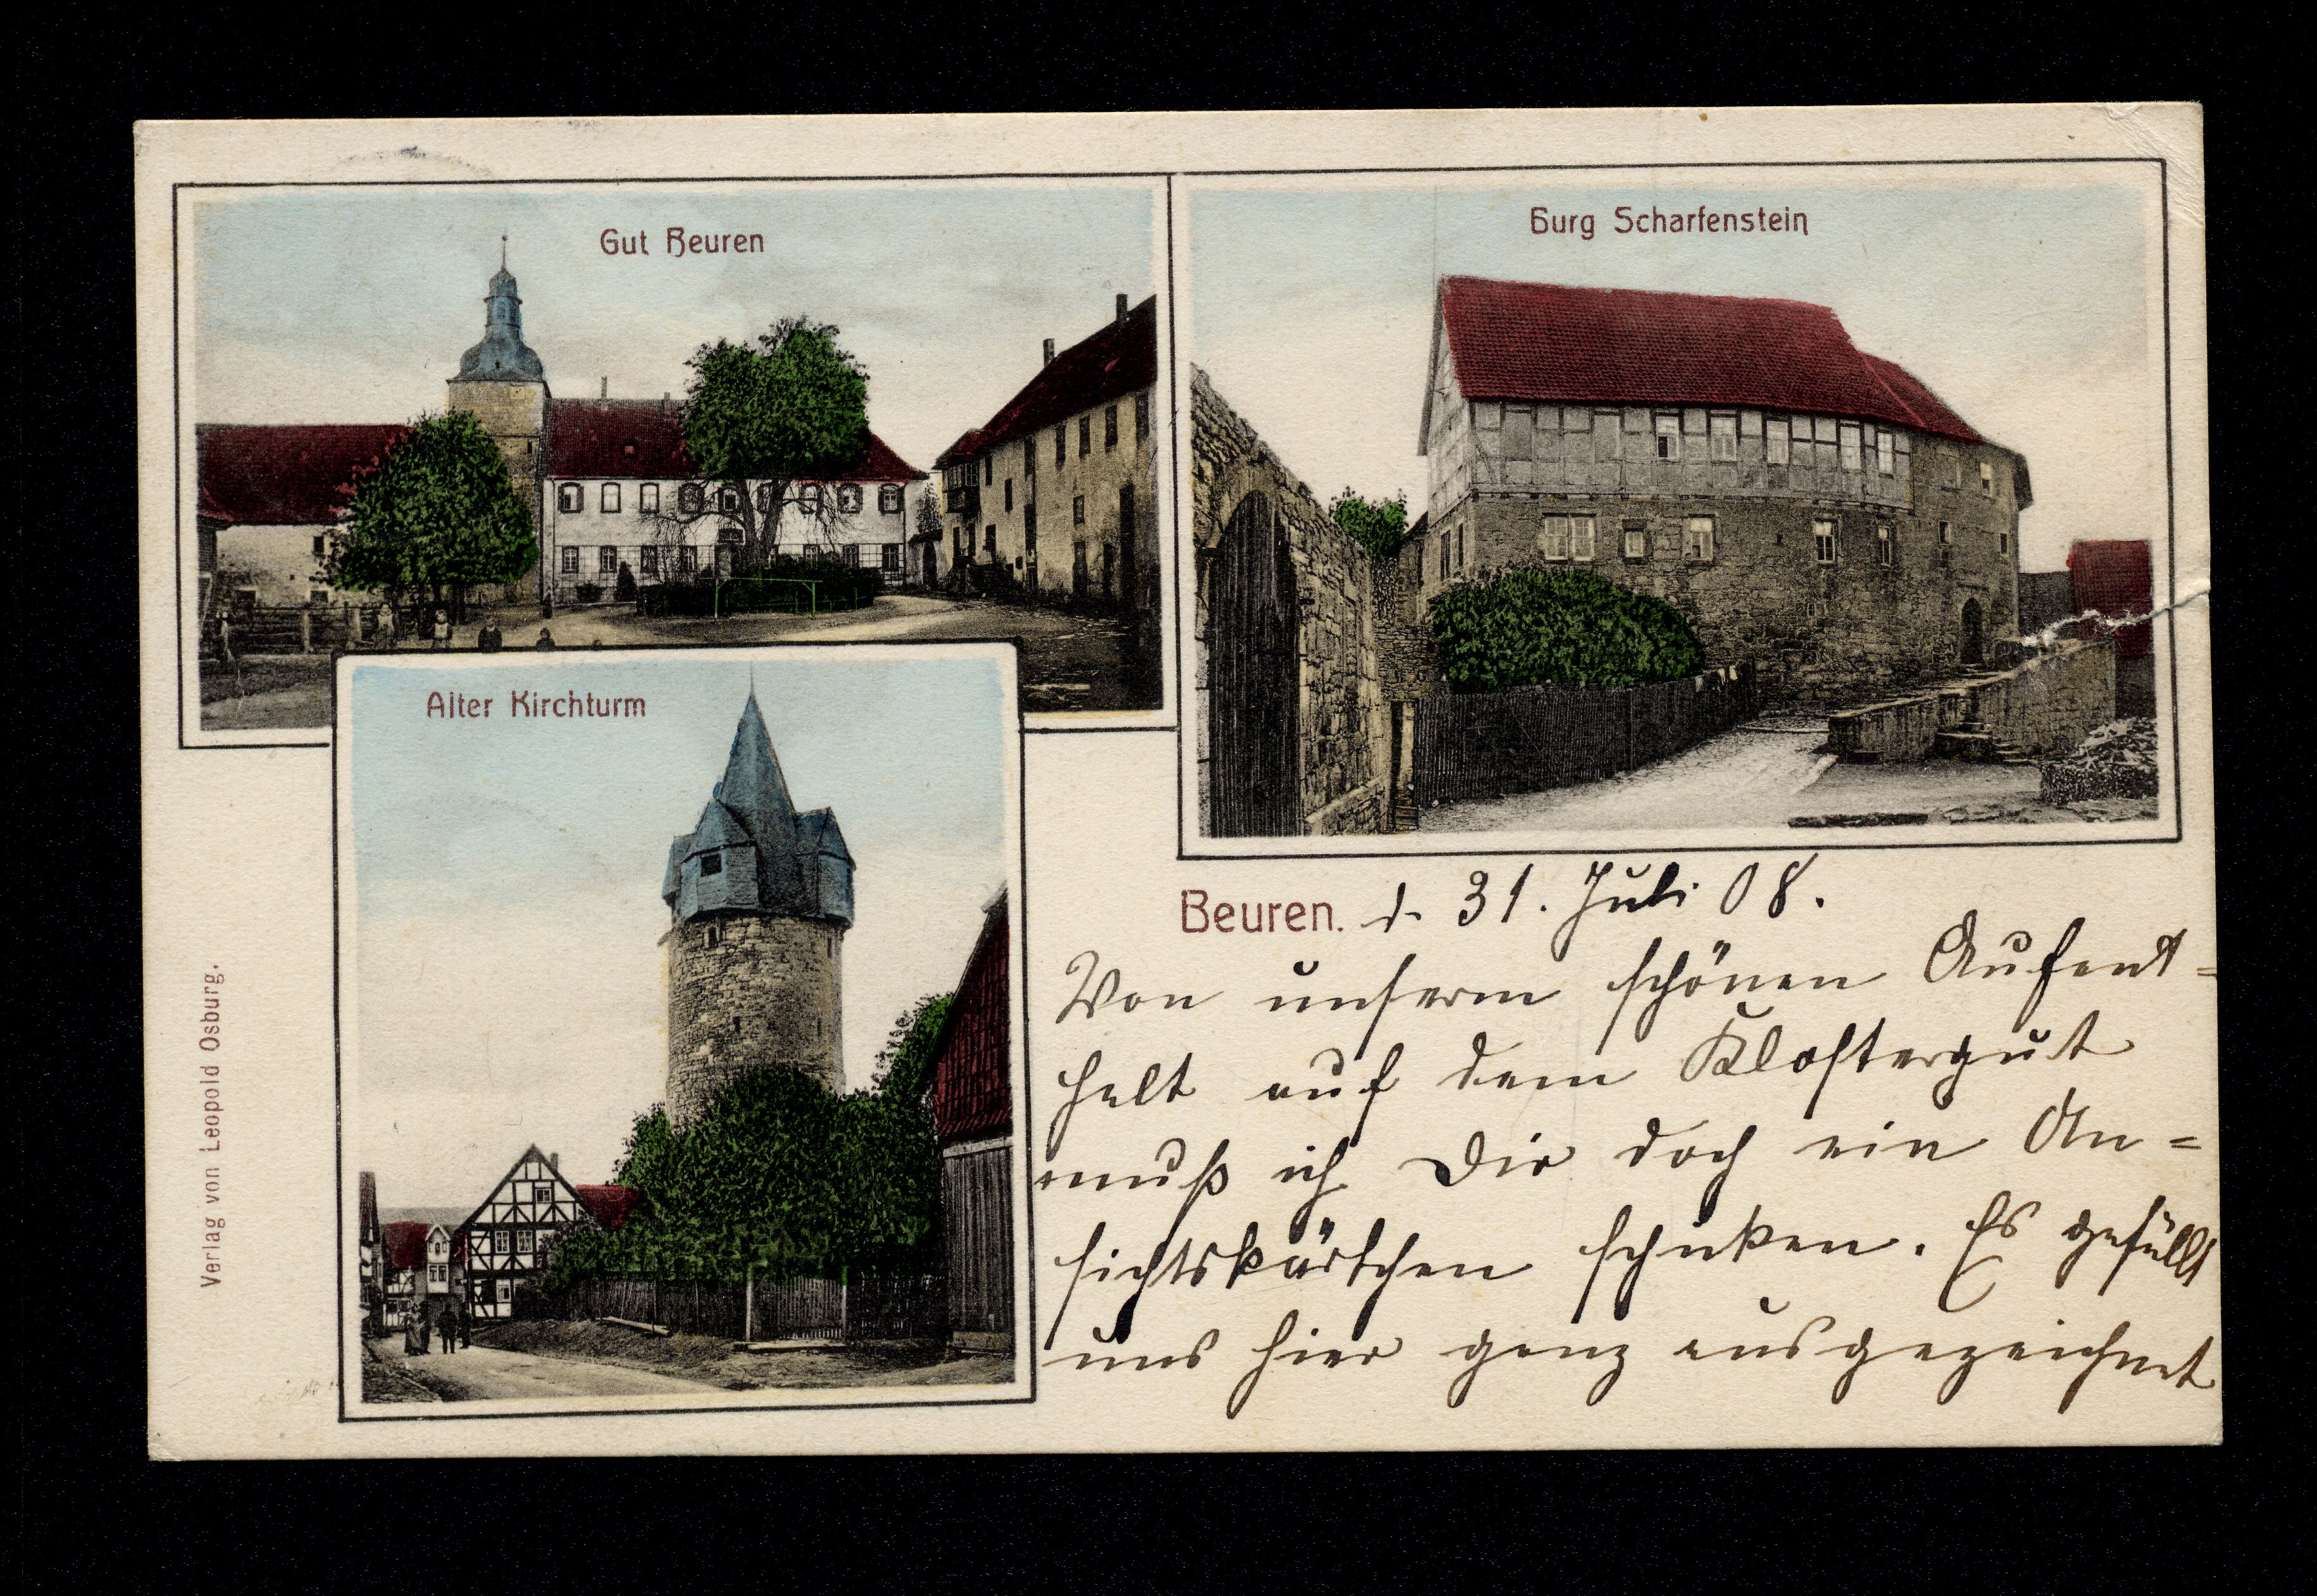 Gut Beuren
Burg Scharfenstein
Alter Kirchturm
Verlag von Leopold Osburg.
Beuren. d. 31. Juli 08.
Von unserm schönen Aufent=
halt auf dem Klostergut
muß ich Dir doch ein An=
sichtskärtchen schicken. Es gefällt
uns hier ganz ausgezeichnet